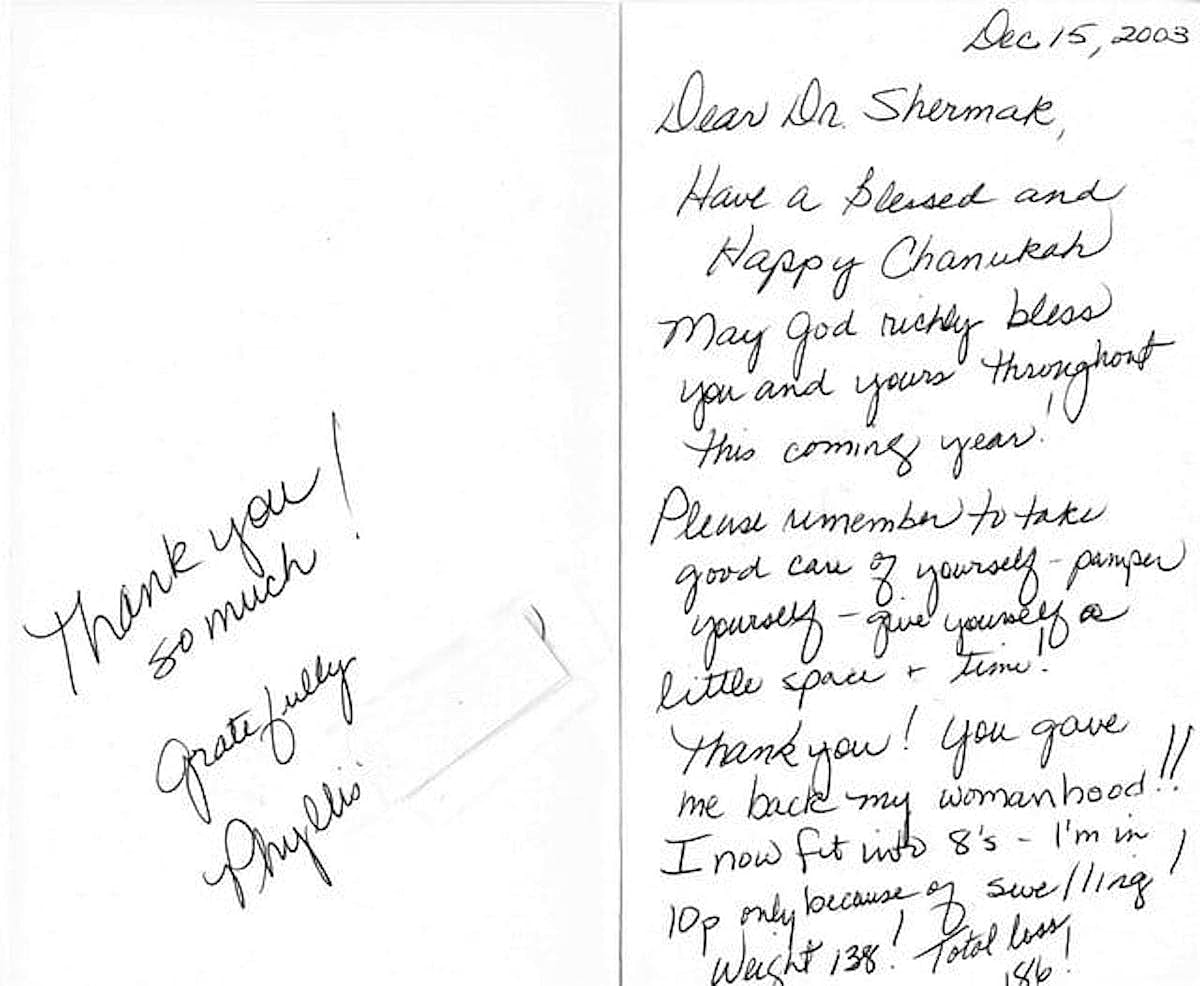 Dec 15, 2003
Dear Dr. Shermak,
Have a Blessed and
Happy Chanukah
May God richly bless
you and yours throughout
this coming year!
Please remember to take
good care of yourself - pamper
yourself - give yourself a
little space + time!
Thank you! You gave
me back my womanhood!!
I now fit into 8's - I'm in
10p only because of swelling!
Weight 138! Total loss
186!
Thank you!
so much
Gratefully
Phyllis